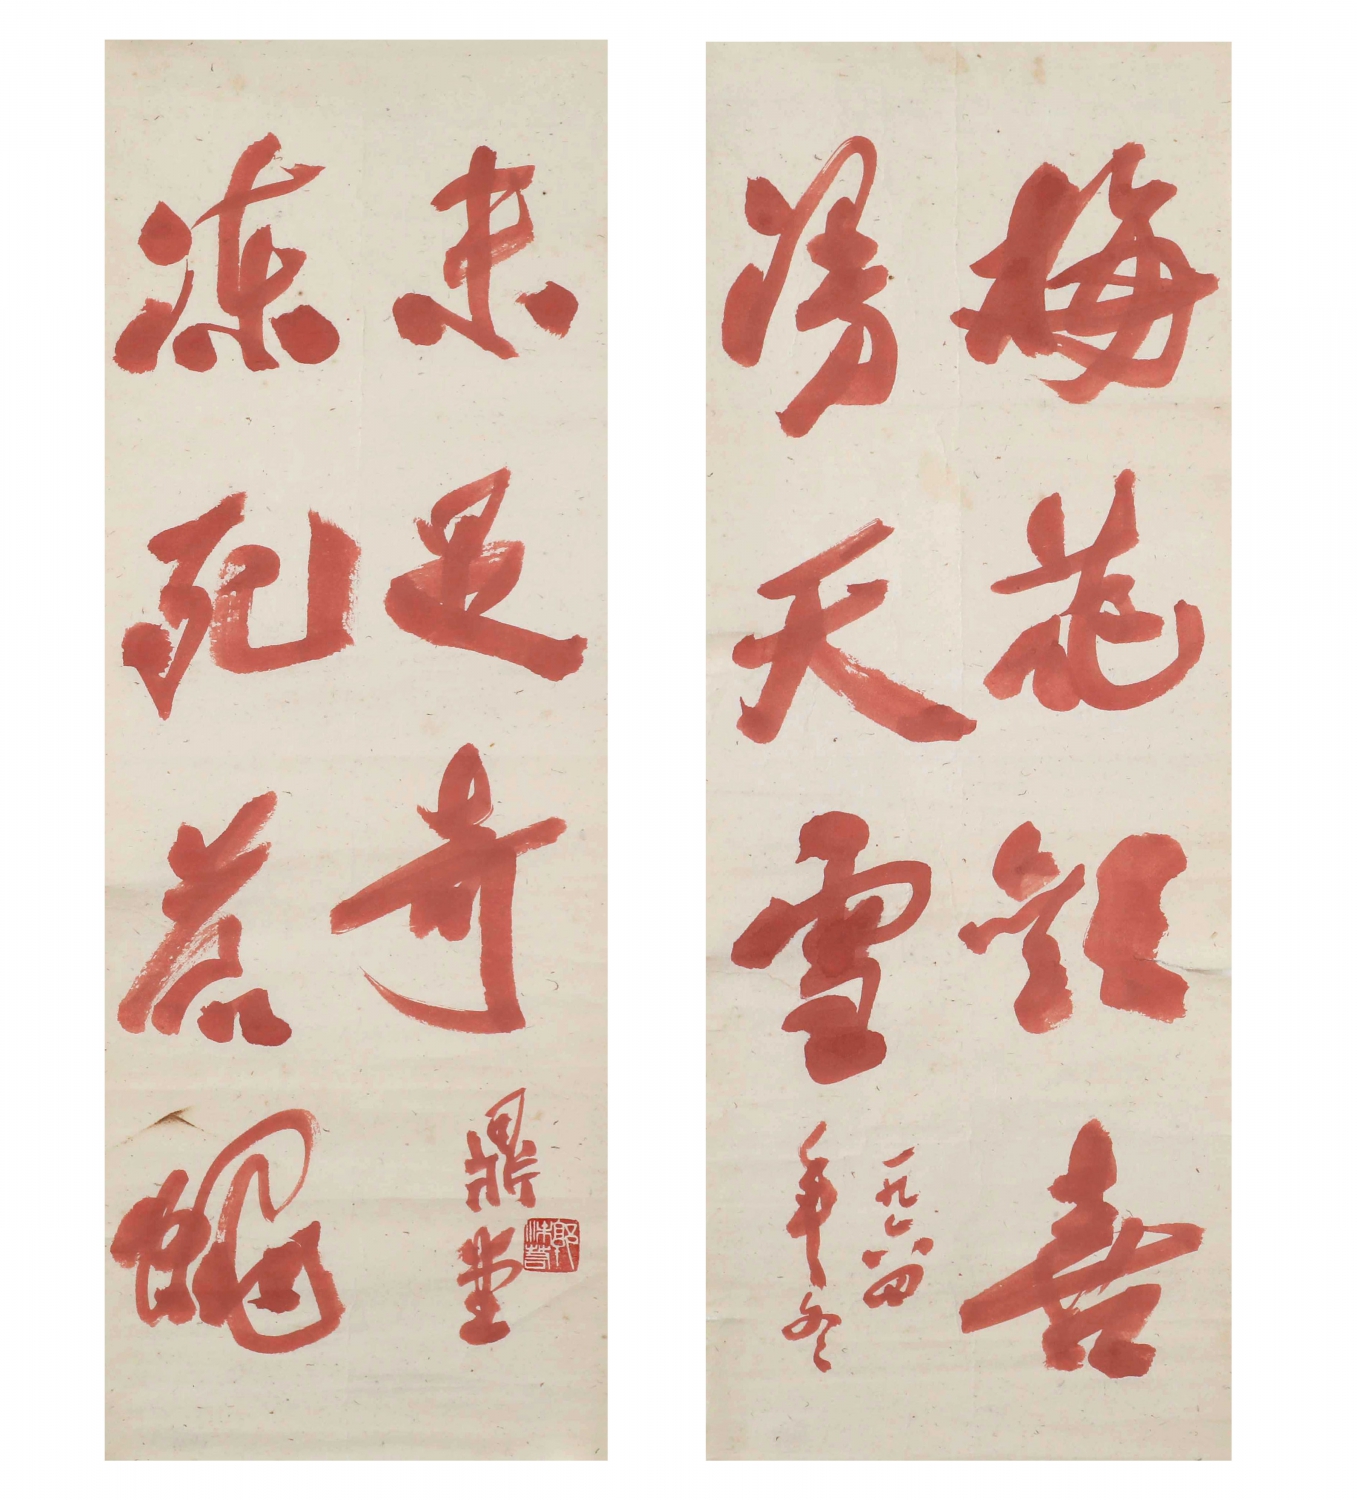 梅花欢喜
漫天雪
一九六四
年冬
冻死苍蝇
未足奇
鼎堂
郭沫若